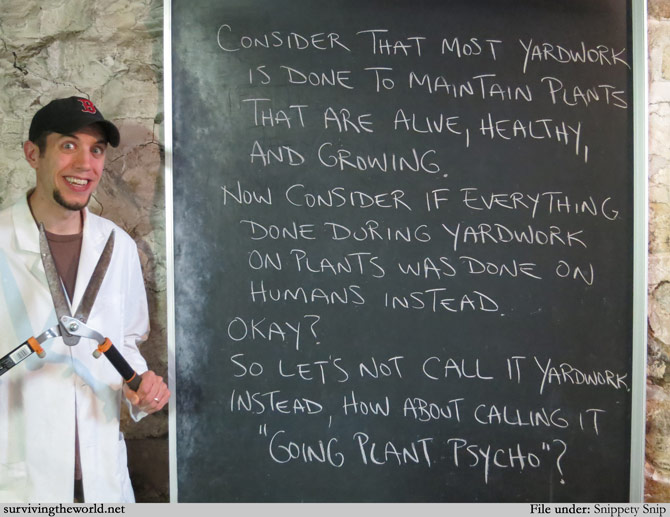 CONSIDER THAT MOST YARDWORK
IS DONE TO MAINTAIN PLANTS
THAT ARE ALIVE, HEALTHY,
AND GROWING.
NOW CONSIDER IF EVERYTHING
DONE DURING YARDWORK
ON PLANTS WAS DONE ON
HUMANS INSTEAD.
OKAY?
SO LET'S NOT CALL IT YARDWORK.
INSTEAD, HOW ABOUT CALLING IT
"GOING PLANT PSYCHO"?
B
survivingtheworld.net
File under: Snippety Snip